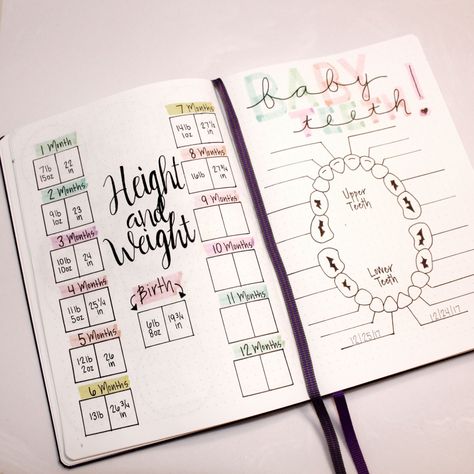 1 Month
7lb 22
15oz in
2 Months
9lb 23
1oz in
3 Months
10lb 24
10oz in
4 Months
11lb 25¼
5oz in
5 Months
12lb 26
2oz in
6 Months
13lb 26¾
in
Height
and
Weight
Birth
6lb 19¾
8oz in
7 Months
14lb
1oz in
8 Months
16lb 27¾
in
9 Months
10 Months
11 Months
12 Months
BABY
TEETH
baby
teeth!
Upper
Teeth
Lower
Teeth
12/25/17
12/24/17